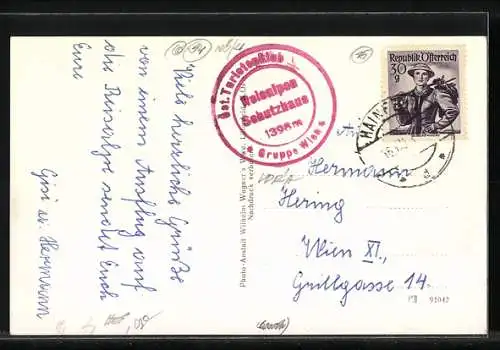 Viele herzliche Grüße
von einem Ausflug auf
die Reisalpe sendet Euch
Eure
Gisi u. Hermann
Öst. Turistenklub
Reisalpen
Schutzhaus
1398 m
Gruppe Wien
Republik Österreich
30 g
HAINF
An
Hermann
Hering
Wien XI.,
Grillgasse 14.
Photo-Anstalt Wilhelm Wagner's
Nachdruck verboten
91042